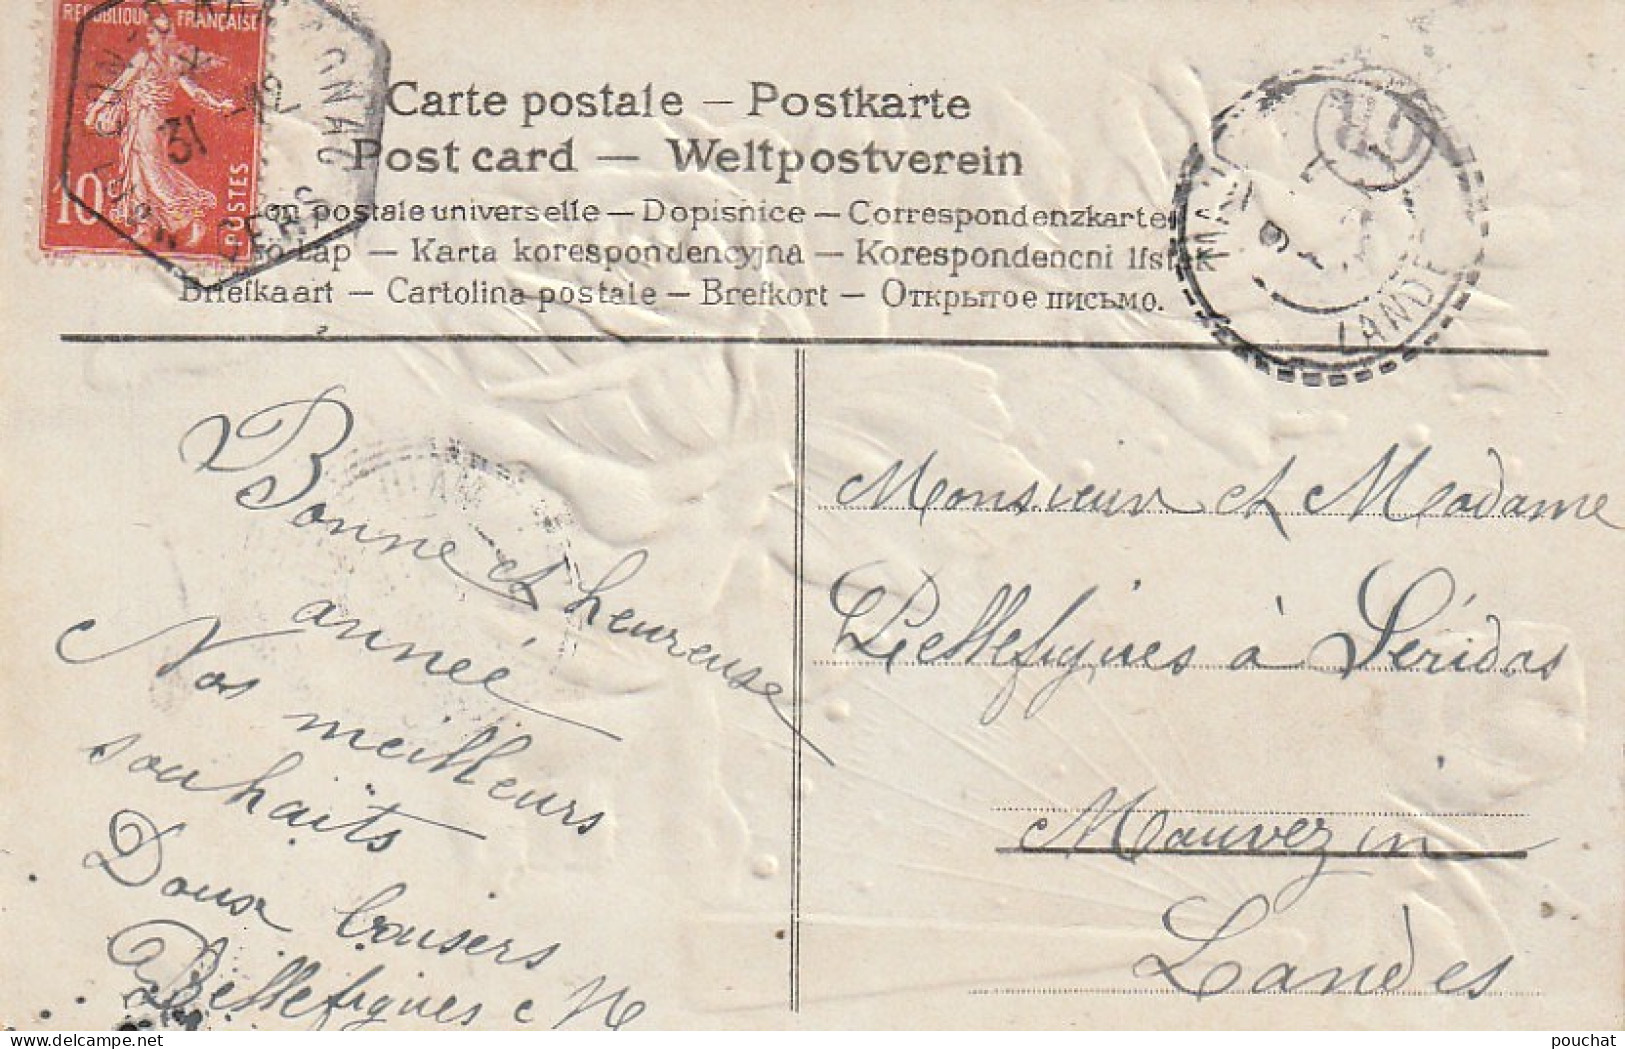 REPUBLIQUE FRANÇAISE
10
POSTES
31
GERS
Carte postale – Postkarte
Post card — Weltpostverein
on postale universelle — Dopisnice — Correspondenzkarte
Lap — Karta korespondencyjna — Korespondencni listek
Briefkaart — Cartolina postale — Brefkort — Открытое письмо.
LANDES
Bonne et heureuse
année
Nos meilleurs
souhaits
Doux baisers
Bellefigues
Monsieur et Madame
Bellefigues à Séridos
Mauvezin
Landes
pouchat